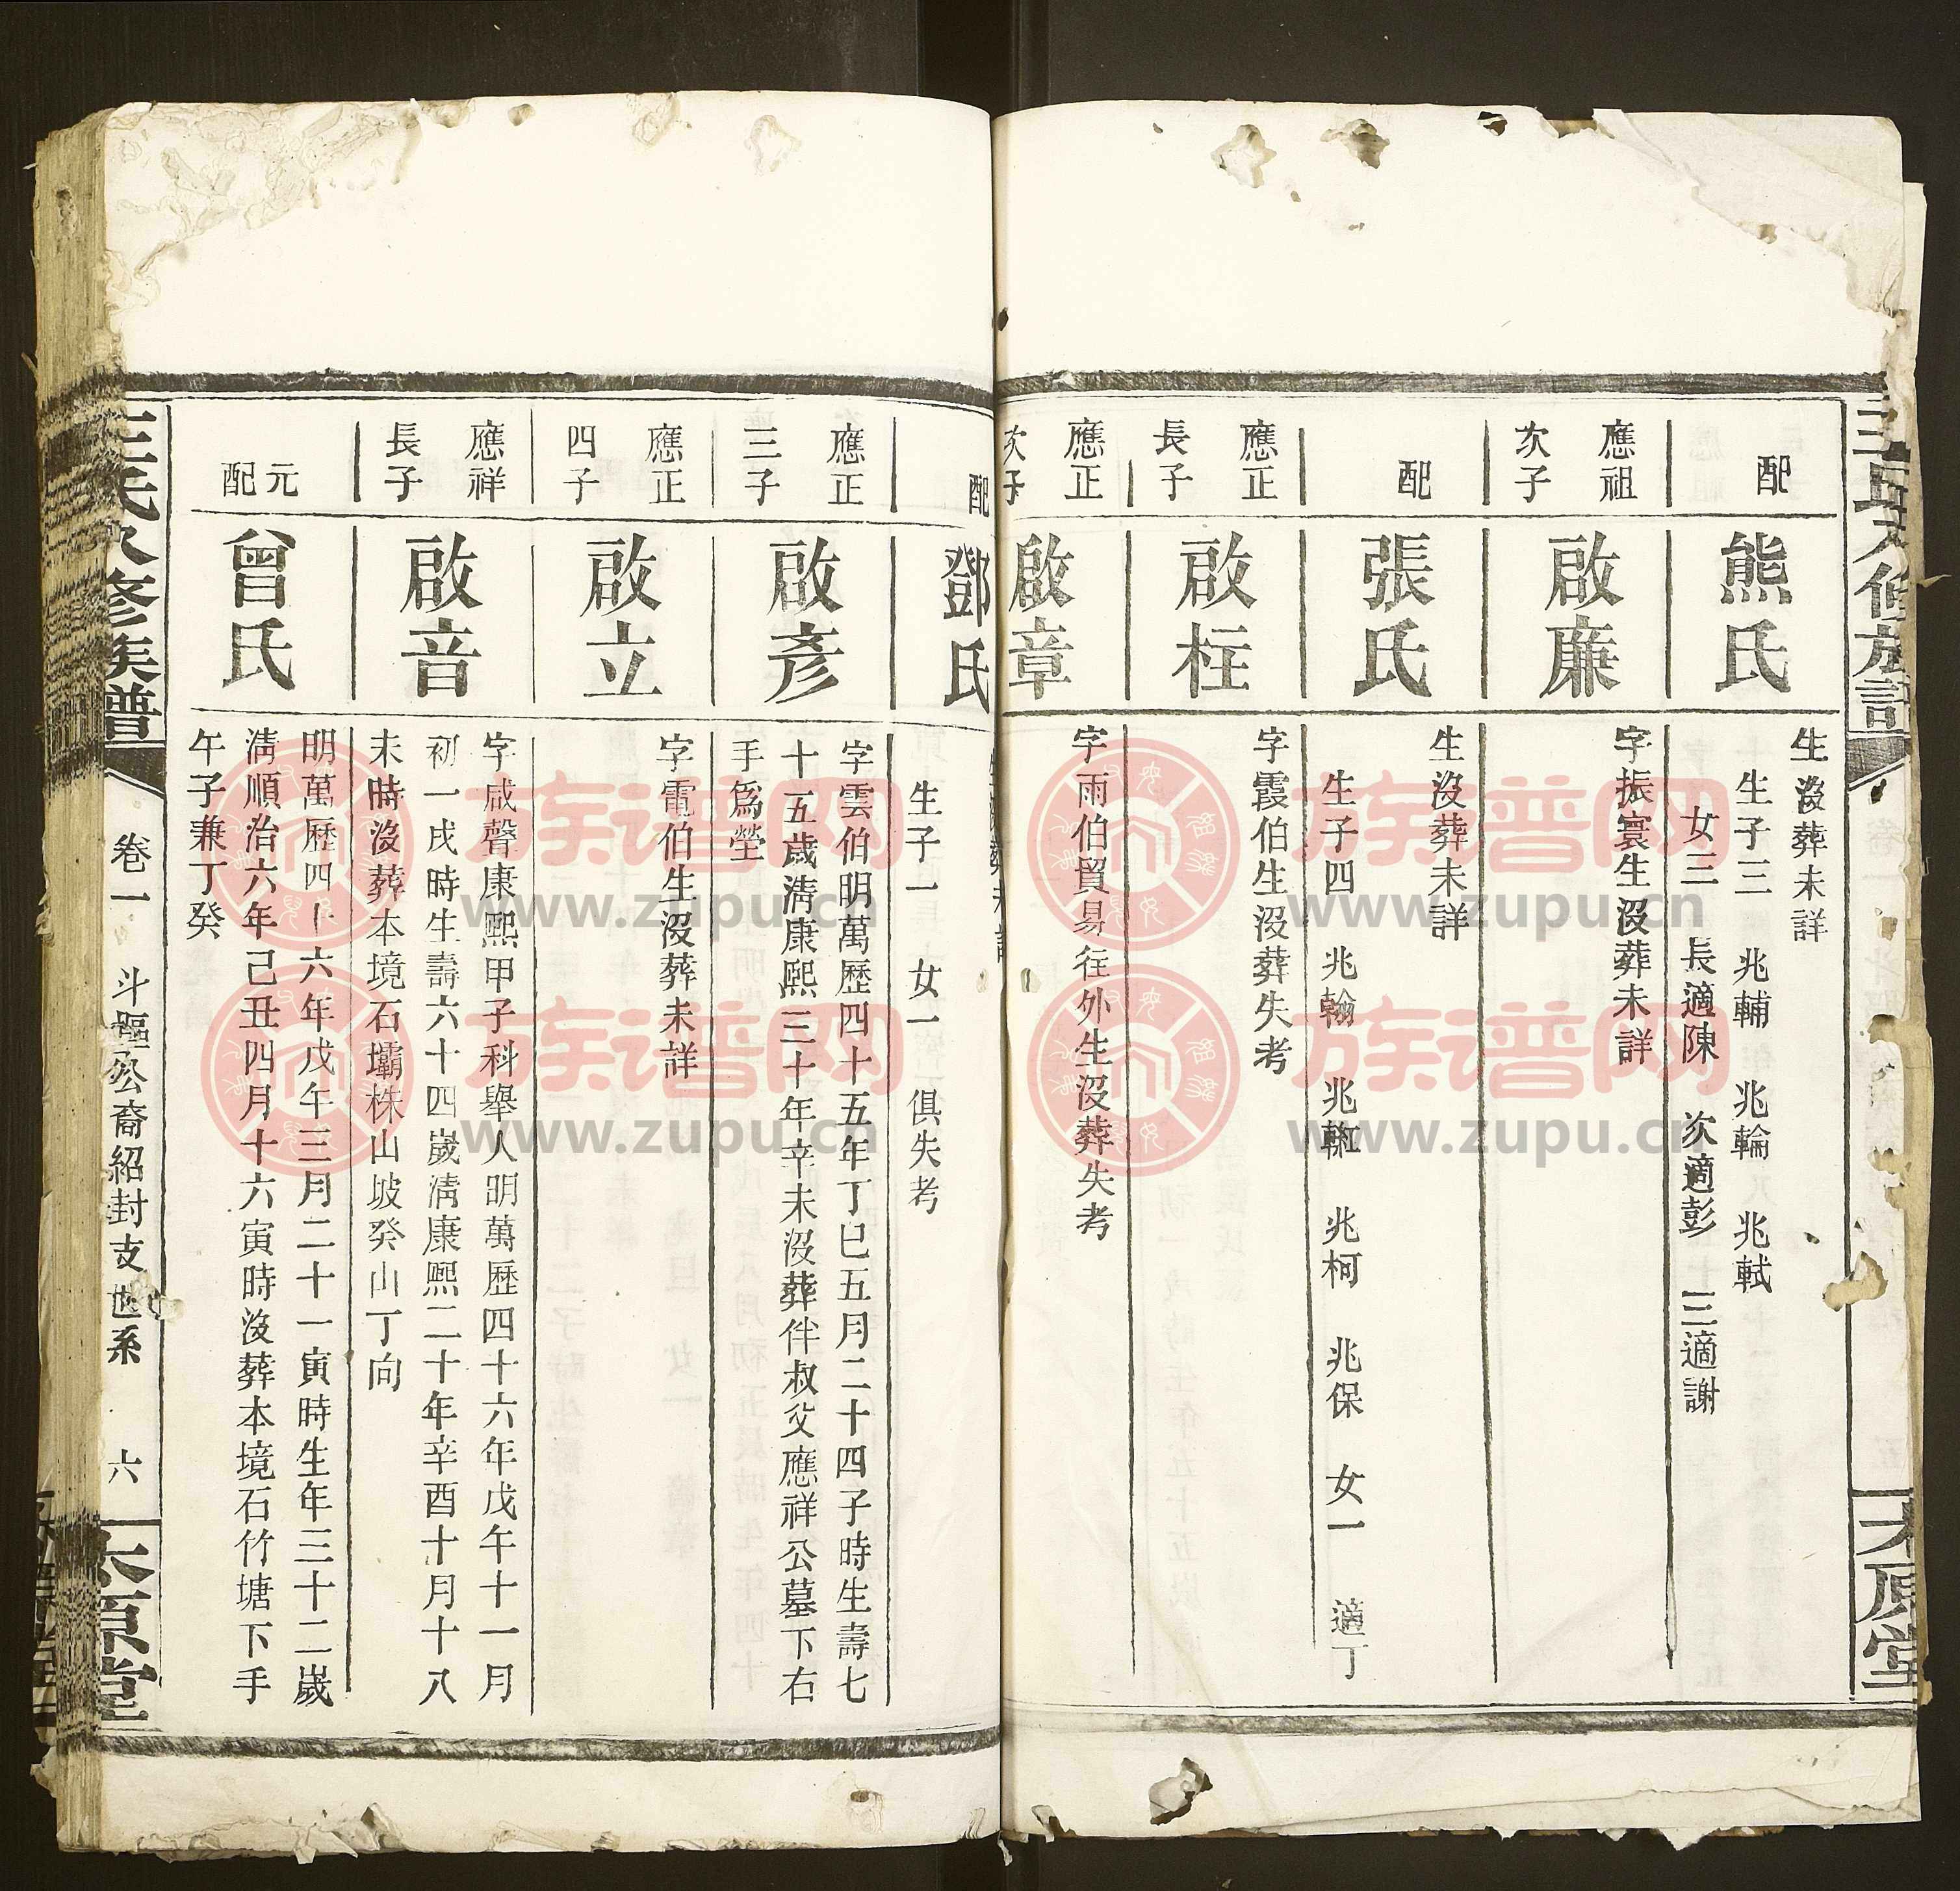 配
熊氏
生沒葬未詳
生子三 兆輔 兆輪 兆軾
女三 長適陳 次適彭 三適謝
應祖
次子
啟廉
字振寰生沒葬未詳
配
張氏
生沒葬未詳
生子四 兆翰 兆 兆柯 兆保 女一 適丁
應正
長子
啟柱
字霞伯生沒葬失考
應正
次子
啟章
字雨伯貿易往外生沒葬失考
太原堂
配
鄧氏
生子一 女一 俱失考
應正
三子
啟彥
字雲伯明萬歷四十五年丁巳五月二十四子時生壽七
十五歲淸康熙三十年辛未沒葬伴叔父應祥公墓下右
手爲塋
應正
四子
啟立
字電伯生沒葬未詳
應祥
長子
啟音
字咸聲康熙甲子科舉人明萬歷四十六年戊午十一月
初一戌時生壽六十四嵗淸康熙二十年辛酉十月十八
未時沒葬本境石壩株山坡癸山丁向
元配
曾氏
明萬歷四十六年戊午三月二十一寅時生年三十二嵗
淸順治六年己丑四月十六寅時沒葬本境石竹塘下手
午子兼丁癸
氏 修族譜
卷一 斗樞公裔紹封支世系 六
太原堂
族谱网
www.zupu.cn
族谱网
www.zupu.cn
族谱网
www.zupu.cn
族谱网
www.zupu.cn